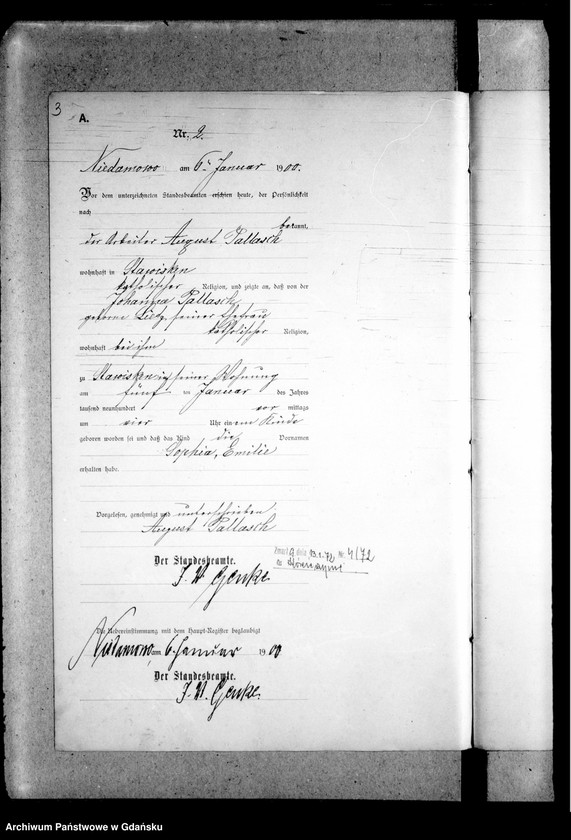 3
A.
Nr. 2.
Niedamowo am 6ten Januar 1900.
Vor dem unterzeichneten Standesbeamten erschien heute, der Persönlichkeit
nach
bekannt,
der Arbeiter August Pallasch
wohnhaft in Stawisken
katholischer Religion, und zeigte an, daß von der
Johanna Pallasch
geborne Lietz, seiner Ehefrau
katholischer Religion,
wohnhaft bei ihm
zu Stawisken in seiner Wohnung
am fünf ten Januar des Jahres
tausend neunhundert vor mittags
um vier Uhr ein em Kinde
geboren worden sei und daß das Kind die Vornamen
Sophia, Emilie
erhalten habe.
Vorgelesen, genehmigt und unterschrieben
August Pallasch
Der Standesbeamte.
J. W. Genke
dnia 13.1.72 Nr. 4/72
Die Uebereinstimmung mit dem Haupt-Register beglaubigt
Niedamowo, am 6. Januar 1900
Der Standesbeamte.
J. W. Genke.
Archiwum Państwowe w Gdańsku